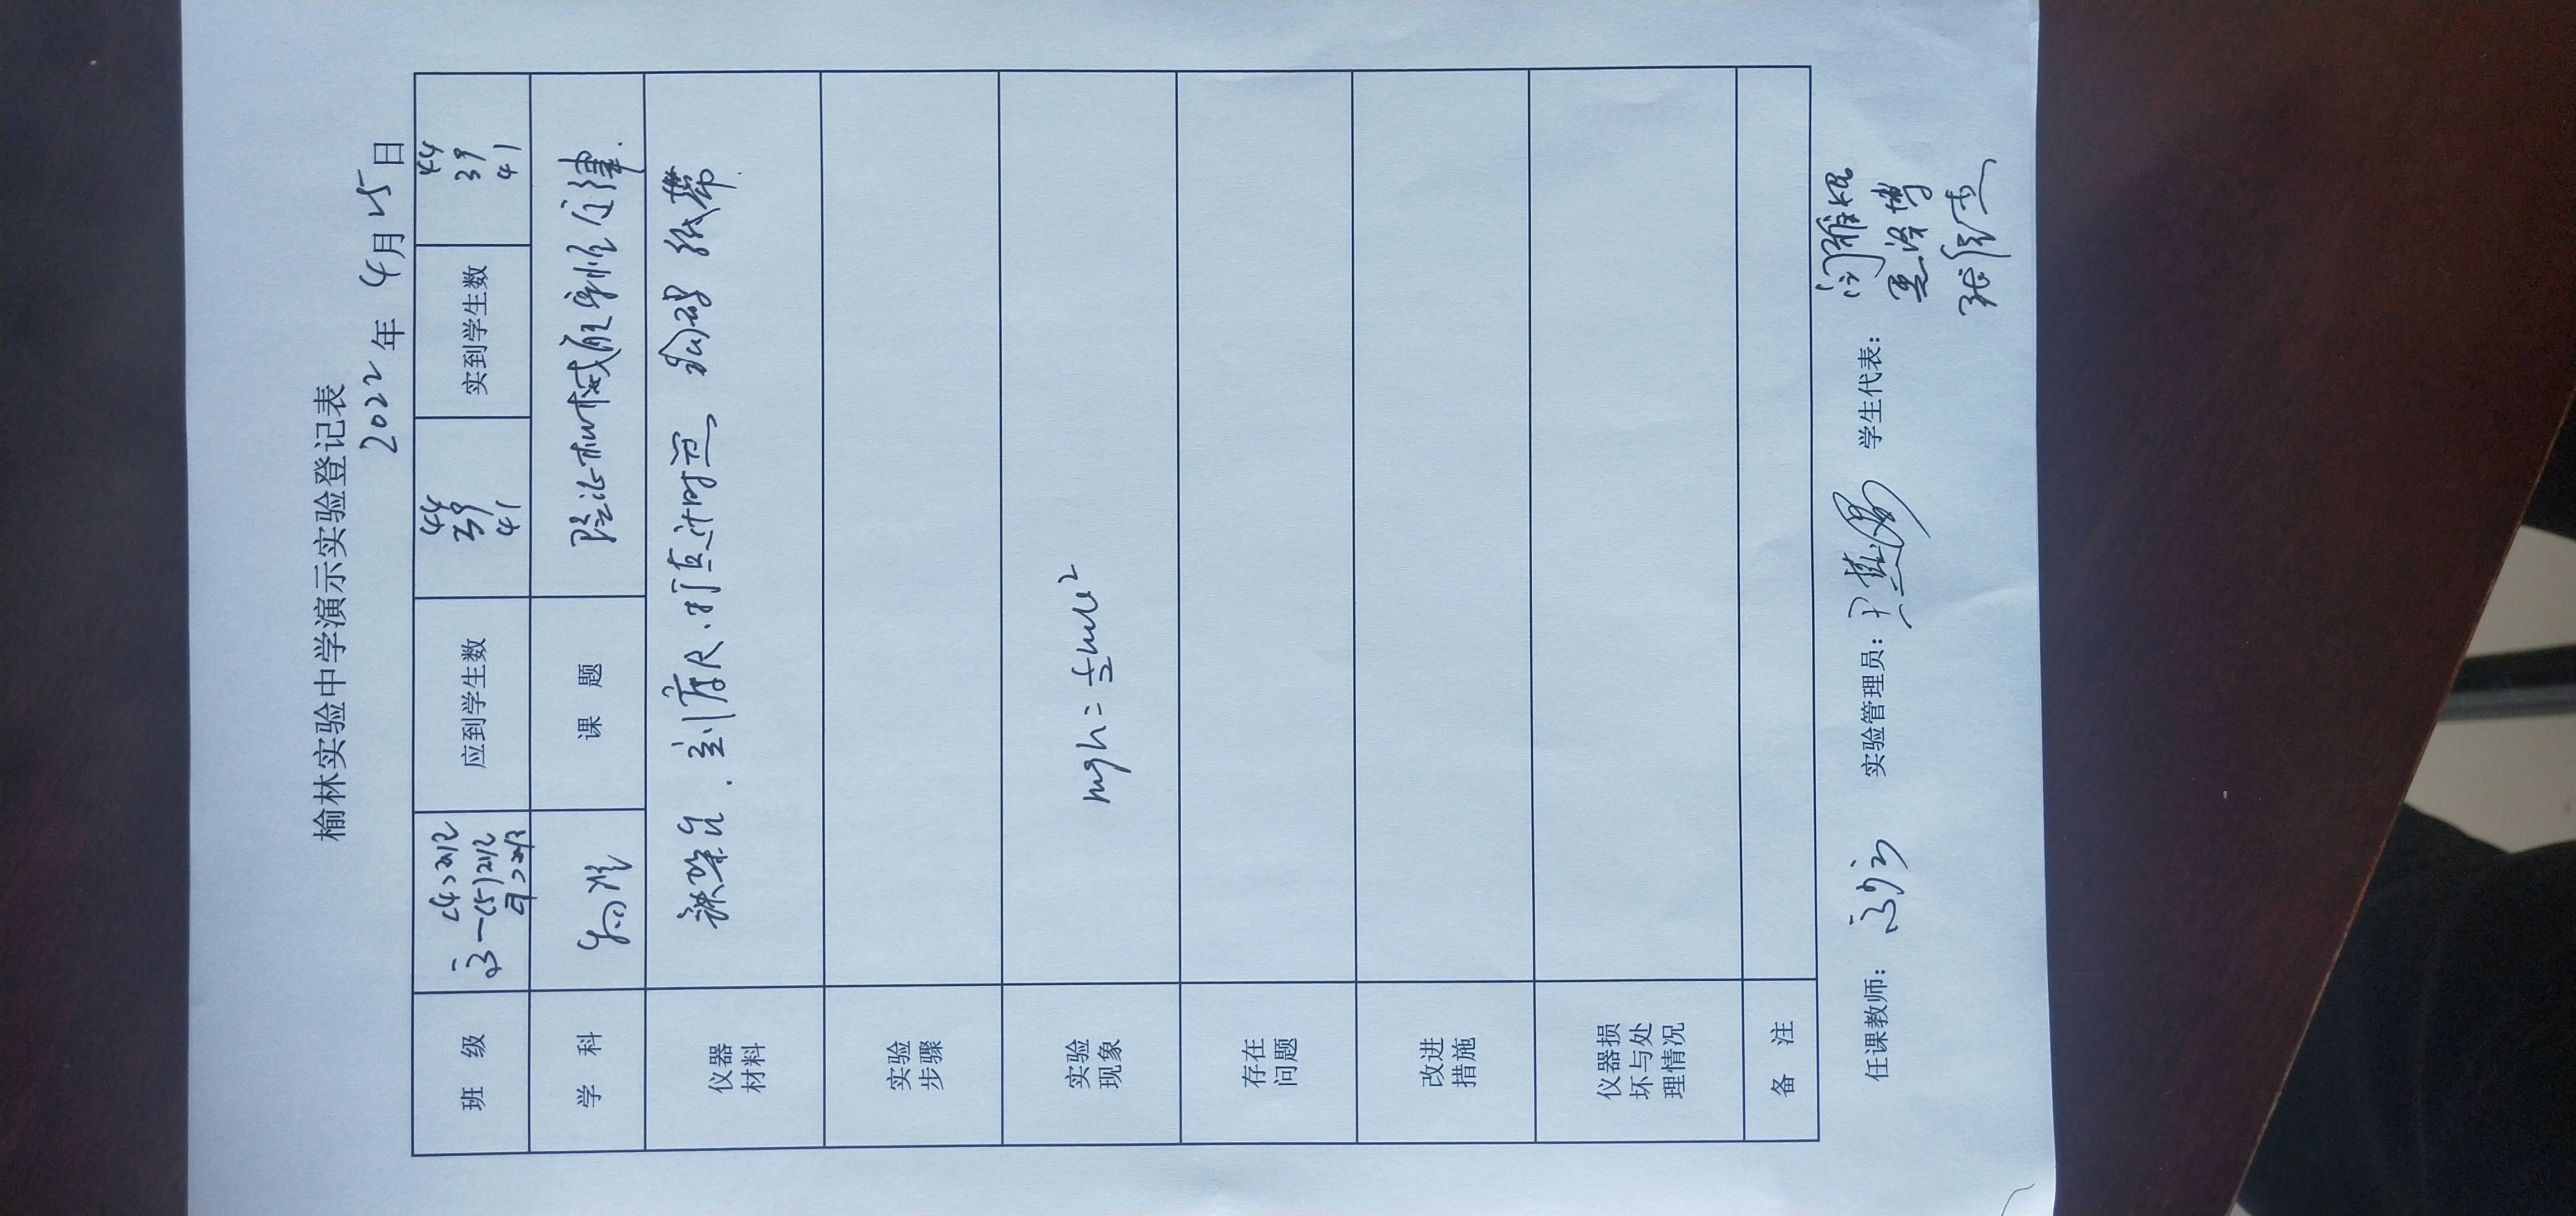 榆林实验中学演示实验登记表
2022年 4月25日
班 级 高一 应到学生数 44 39 41 实到学生数 44 39 41
学 科 物理 课 题 验证机械能守恒定律.
仪器材料 铁架台. 刻度尺. 打点计时器 钩码 纸带.
实验步骤
实验现象 mgh=½mv²
存在问题
改进措施
仪器损坏与处理情况
备 注
任课教师: 实验管理员: 学生代表: